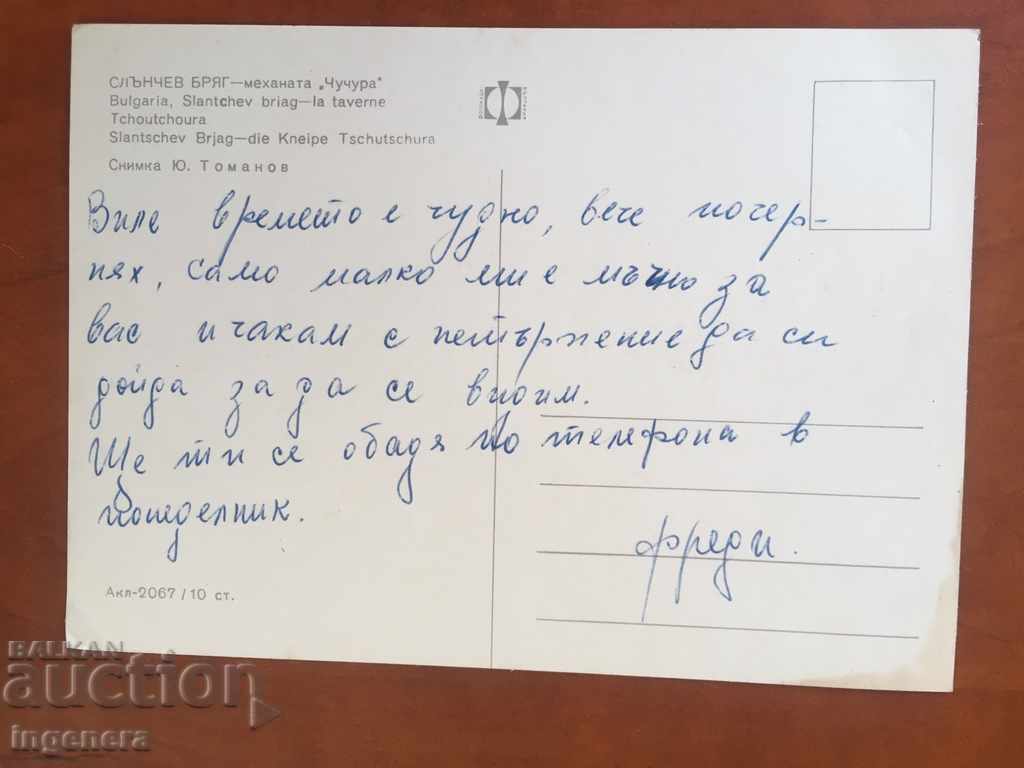 СЛЪНЧЕВ БРЯГ—механата „Чучура"
Bulgaria, Slantchev briag—la taverne
Tchoutchoura
Slantschev Brjag—die Kneipe Tschutschura
Снимка Ю. Томанов
Виле времето е чудно, вече почер-
нях, само малко ми е мъчно за
вас и чакам с нетърпение да си
дойда за да се видим.
Ще ти се обадя по телефона в
понеделник.
Фреди.
Акл-2067/10 ст.
BALKAN
auction
ingenera